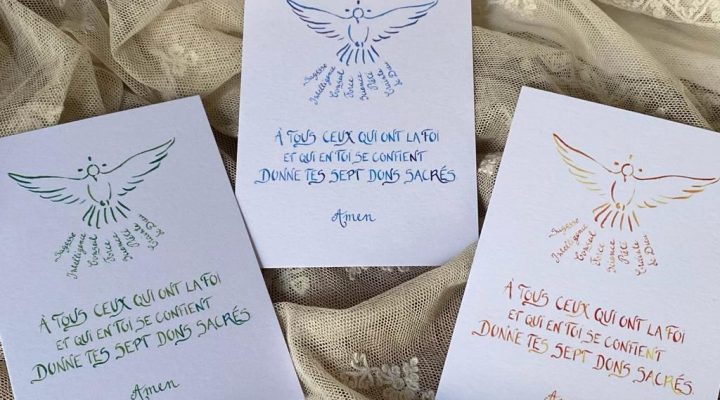 Sagesse
Intelligence
Conseil
Force
Science
Piété
Crainte
de Dieu
À TOUS CEUX QUI ONT LA FOI
ET QUI EN TOI SE CONFIENT
DONNE TES SEPT DONS SACRÉS.
Amen
Sagesse
Intelligence
Conseil
Force
Science
Piété
Crainte
de Dieu
À TOUS CEUX QUI ONT LA FOI
ET QUI EN TOI SE CONFIENT
DONNE TES SEPT DONS SACRÉS.
Amen
Sagesse
Intelligence
Conseil
Force
Science
Piété
Crainte
de Dieu
À TOUS CEUX QUI ONT LA FOI
ET QUI EN TOI SE CONFIENT
DONNE TES SEPT DONS SACRÉS.
Amen